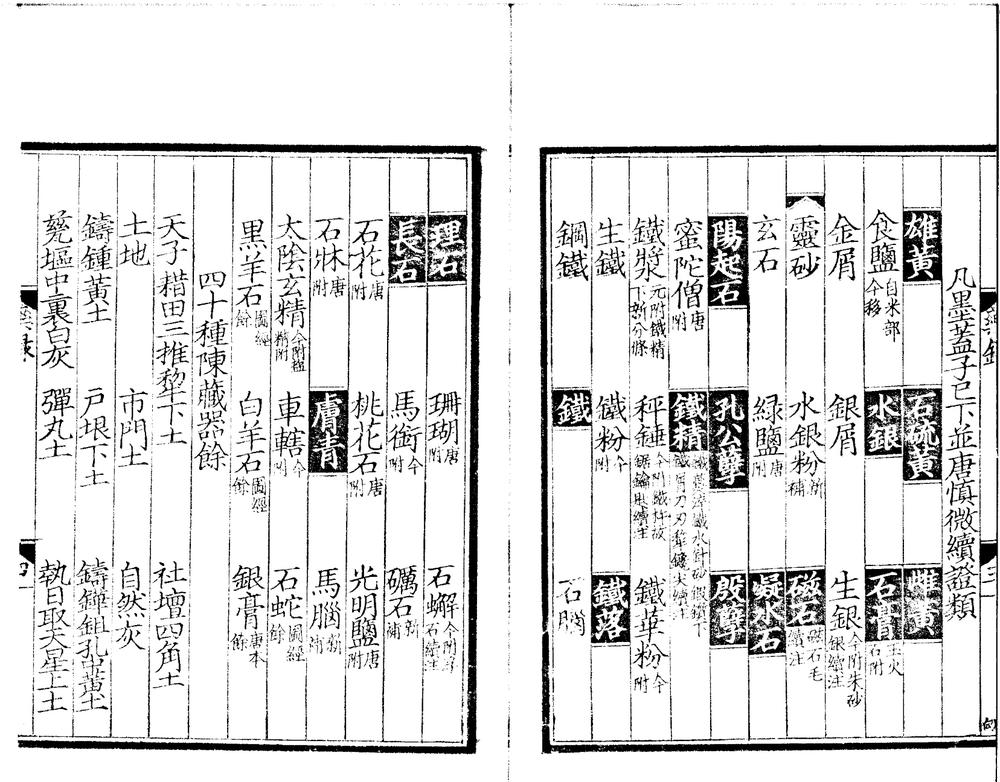 凡墨蓋子已下並唐愼微續證類
雄黃 石硫黃 雌黃
食鹽自米部今移 水銀 石膏玉火石附
金屑 銀屑 生銀今附朱砂銀續注
靈砂 水銀粉新補 磁石磁石毛續注
玄石 綠鹽唐附 凝水石
陽起石 孔公孽 殷孽
蜜陀僧唐附 鐵精
鐵漿元附鐵精下新分條 秤錘 鐵華粉今附
生鐵 鐵粉今附 鐵落
鋼鐵 鐵 石腦
理石 珊瑚唐附 石蠏
長石 馬銜今附 礪石新補
石花唐附 桃花石唐附 光明鹽唐附
石牀唐附 膚青 馬腦新補
太陰玄精 車轄今附 石蛇圖經餘
黑羊石圖經餘 白羊石圖經餘 銀膏唐本餘
四十種陳藏器餘
天子耤田三推犂下土 社壇四角土
土地 市門土 自然灰
鑄鍾黃土 戶垠下土 鑄鏵鉏孔中黃土
甕塸中裏白灰 彈丸土 執日取天星上土